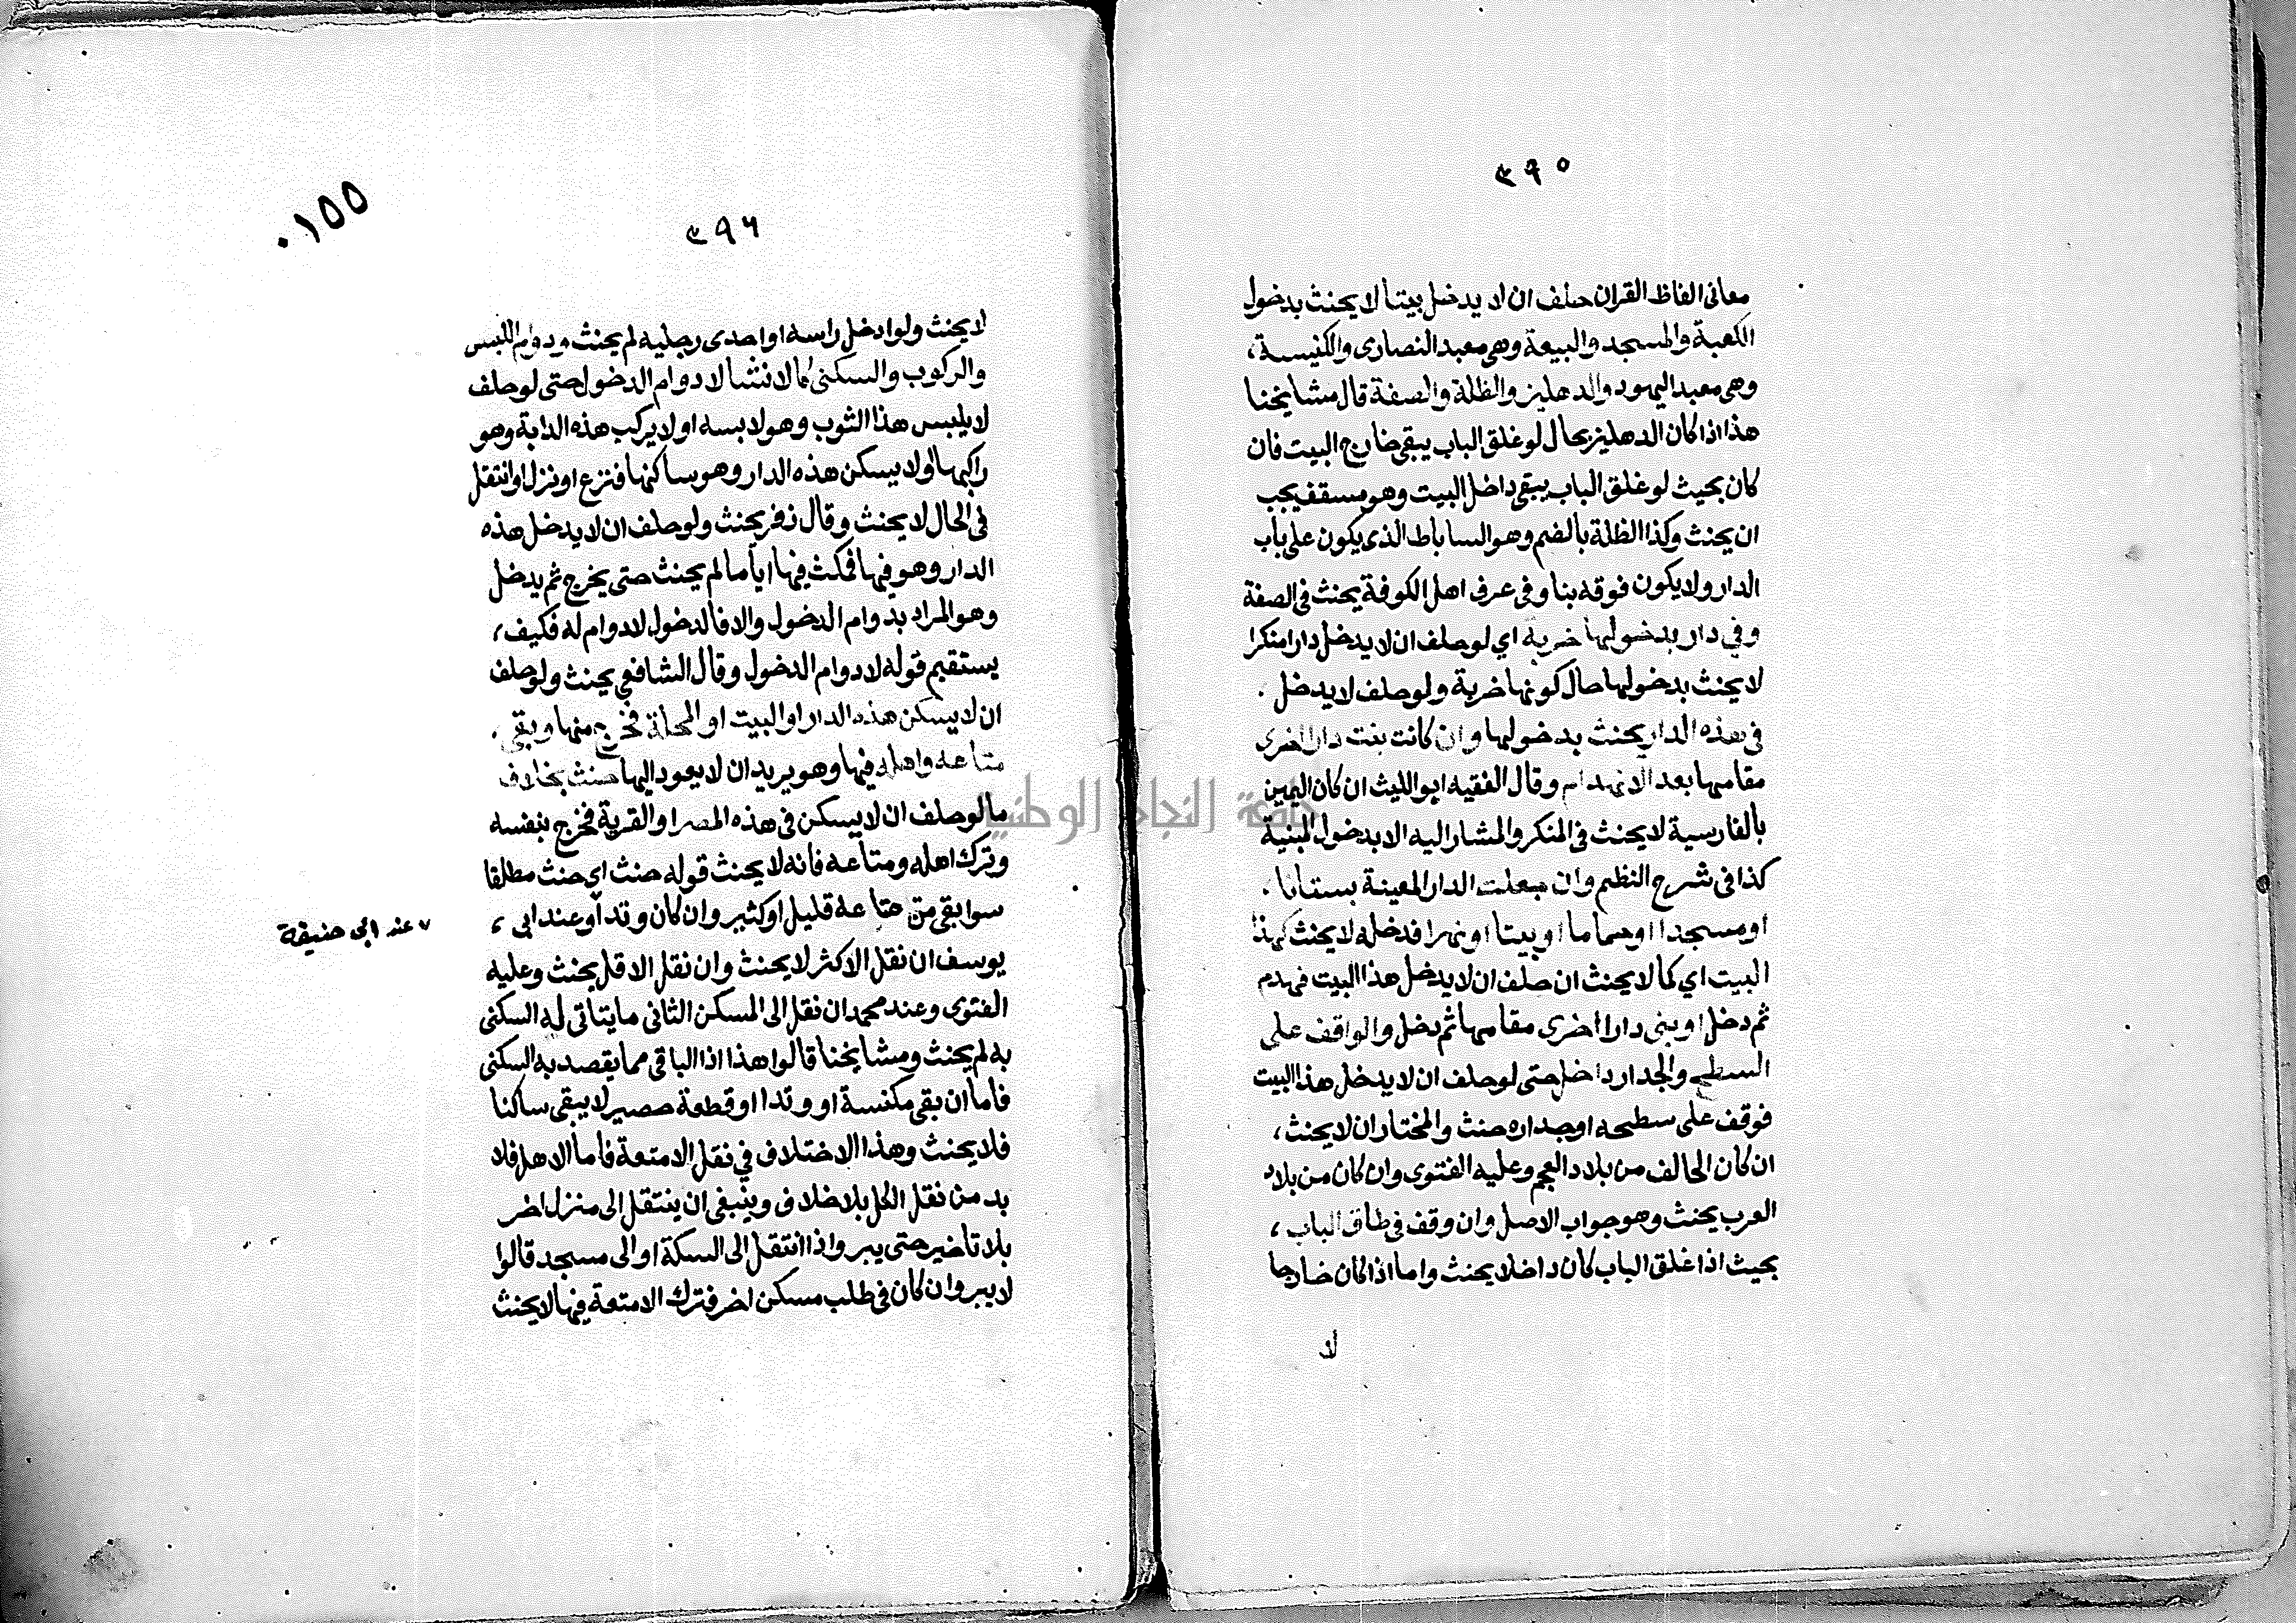 ٣٩٥
معانى الفاظ القران حلف ان لا يدخل بيتا لا يحنث بدخول
الكعبة والمسجد والبيعة وهى معبد النصارى والكنيسة،
وهى معبد اليهود والدهليز والظلة والصفة قال مشايخنا
هذا اذا كان الدهليز بحال لو غلق الباب يبقى خارج البيت فان
كان بحيث لو غلق الباب يبقى داخل البيت وهو مسقف يجب
ان يحنث وكذا الظلة بالضم وهو الساباط الذى يكون على باب
الدار ولا يكون فوقه بنا وفى عرف اهل الكوفة يحنث فى الصفة
وفي دار بدخولها خربة اي لو حلف ان لا يدخل دارا منكرا
لا يحنث بدخولها حال كونها خربة ولو حلف لا يدخل .
فى هذه الدار يحنث بدخولها وان كانت بنت دار اخرى
مقامها بعد الانهدام وقال الفقيه ابو الليث ان كان اليمين
بالفارسية لا يحنث فى المنكر والمشار اليه الا بدخول المبنية
كذا فى شرح النظم وان جعلت الدار المعينة بستانا .
او مسجدا او حماما او بيتا او نهرا فدخله لا يحنث كهذا
البيت اي كما لا يحنث ان حلف ان لا يدخل هذا البيت فهدم
ثم دخل او بنى دارا اخرى مقامها ثم دخل والواقف على
السطح والجدار داخل حتى لو حلف ان لا يدخل هذا البيت
فوقف على سطحه او جداره حنث والمختار ان لا يحنث،
ان كان الحالف من بلاد العجم وعليه الفتوى وان كان من بلاد
العرب يحنث وهو جواب الاصل وان وقف فى طاق الباب،
بحيث اذا غلق الباب كان داخلا يحنث واما اذا كان خارجا
لا
٠١٥٥
٣٩٦
لا يحنث ولو ادخل راسه او احدى رجليه لم يحنث ودوام اللبس
والركوب والسكنى كالانشا لا دوام الدخول حتى لو حلف
لا يلبس هذا الثوب وهو لابسه او لا يركب هذه الدابة وهو
راكبها او لا يسكن هذه الدار وهو ساكنها فنزع او نزل او انتقل
فى الحال لا يحنث وقال زفر يحنث ولو حلف ان لا يدخل هذه
الدار وهو فيها فمكث فيها اياما لم يحنث حتى يخرج ثم يدخل
وهو المراد بدوام الدخول والا فالدخول لا دوام له فكيف،
يستقيم قوله لا دوام الدخول وقال الشافعي يحنث ولو حلف
ان لا يسكن هذه الدار او البيت او المحلة فخرج منها وبقى .
متاعه واهله فيها وهو يريد ان لا يعود اليها حنث بخلاف
ما لو حلف ان لا يسكن فى هذه المصر او القرية فخرج بنفسه
وترك اهله ومتاعه فانه لا يحنث قوله حنث اي حنث مطلقا
سوا بقى من متاعه قليل او كثير وان كان وتدا وعند ابى،
٧ عند ابى حنيفة
يوسف ان نقل الاكثر لا يحنث وان نقل الاقل يحنث وعليه
الفتوى وعند محمد ان نقل الى المسكن الثانى ما يتاتى له السكنى
به لم يحنث ومشايخنا قالوا هذا اذا الباقى مما يقصد به السكنى
فاما ان بقى مكنسة او وتدا او قطعة حصير لا يبقى ساكنا
فلا يحنث وهذا الاختلاف في نقل الامتعة فاما الاهل فلا
بد من نقل الكل بلا خلاف وينبغى ان ينتقل الى منزل اخر
بلا تاخير حتى يبر واذا انتقل الى السكة او الى مسجد قالوا
لا يبر وان كان فى طلب مسكن اخر فترك الامتعة فيها لا يحنث
جامعة النجاح الوطنية